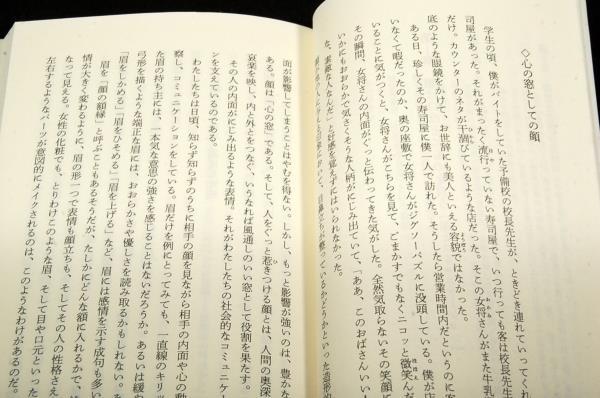 ◇心の窓としての顔
学生の頃、僕がバイトをしていた予備校の校長先生が、ときどき連れていってくれ
司屋があった。それがまったく流行っていない寿司屋で、いつ行っても客は校長先生
だけ。カウンターのネタが干涸びているような店だった。そこの女将さんがまた牛乳
底のような眼鏡をかけて、お世辞にも美人といえる容貌ではなかった。
ある日、珍しくその寿司屋に僕一人で訪れた。そうしたら営業時間内だというのに客
いなくて暇だったのか、奥の座敷で女将さんがジグソーパズルに没頭している。僕が店
いることに気がつくと、女将さんがこちらを見て、ごまかすでもなくニコッと微笑んだ
その瞬間、女将さんの内面がぐっと伝わってきた気がした。全然気取らないその笑顔に
いかにもおおらかで気さくそうな人柄がにじみ出ていて、「ああ、このおばさんいい
な、素敵な人なんだ」と好感を覚えずにはいられなかった。
鼻立ちが整っているかどうかといった造形的
頭が影響してしまうことはやむを得ない。しかし、もっと影響が強いのは、豊かな
ある。顔は「心の窓」である。そして、人をぐっと惹きつける顔とは、人間の奥深
哀楽を映し、内と外とをつなぐ、いうなれば風通しのいい窓として役割を果たす。
その人の内面がにじみ出るような表情。それがわたしたちの社会的なコミュニケー
ンを支えているのである。
わたしたちは日頃、知らず知らずのうちに相手の顔を見ながら相手の内面や心の動
察し、コミュニケーションをしている。眉だけを例にとってみても、一直線のキリッ
たた眉の持ち主には、一本気な意思の強さを感じることはないだろうか。あるいは緩や
弓形を描くような端正な眉には、おおらかさや優しさを読み取るかもしれない。そ
「眉をしかめる」「眉をひそめる」「眉を上げる」など、眉には感情を示す成句も多い
眉を「顔の額縁」と呼ぶこともあるそうだが、たしかにどんな額に入れるかで、絵
情が大きく変わるように、眉の形一つで表情も顔立ちも、そしてその人の性格さえ
なって見える。女性の化粧でも、とりわけこのような眉、そして目や口元といった
左右するようなパーツが意図的にメイクされるのは、このようなわけがあるのだ。